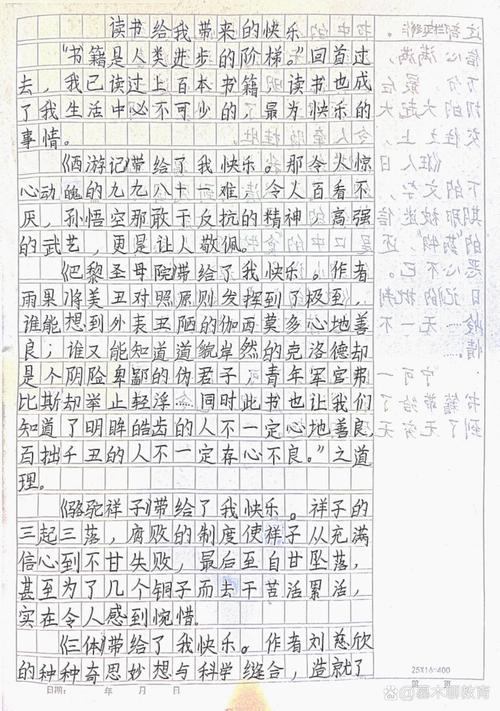 读书给我带来的快乐
"书籍是人类进步的阶梯。"回首过
去，我已读过上百本书籍，读书也成
了我生活中必不可少的，最为快乐的
事情。
《西游记》带给了我快乐。那令人惊
心动魄的九九八十一难，令人百看不
厌，孙悟空那敢于反抗的精神，高强
的武艺，更是让人敬佩。
《巴黎圣母院》带给了我快乐。作者
雨果将美丑对照原则发挥到了极至，
谁能想到外表丑陋的伽西莫多心地善
良；谁又能知道道貌岸然的克洛德却
是个阴险卑鄙的伪君子，青年军官弗
比斯却举止轻浮…同时此书也让我们
知道了明眸皓齿的人不一定心地善良，
百拙千丑的人不一定存心不良。"之道
理。
《骆驼祥子》带给了我快乐。祥子的
三起三落，腐败的制度使祥子从充满
信心到不甘失败，最后至自甘坠落，
甚至为了几个铜子而去干苦活累活，
实在令人感到惋惜。
《三体》带给了我快乐。作者刘慈欣
的种种奇思妙想与科学缝合，造就了
日期： 年 月 日
25X16=400
第 页
@墓木聊教育